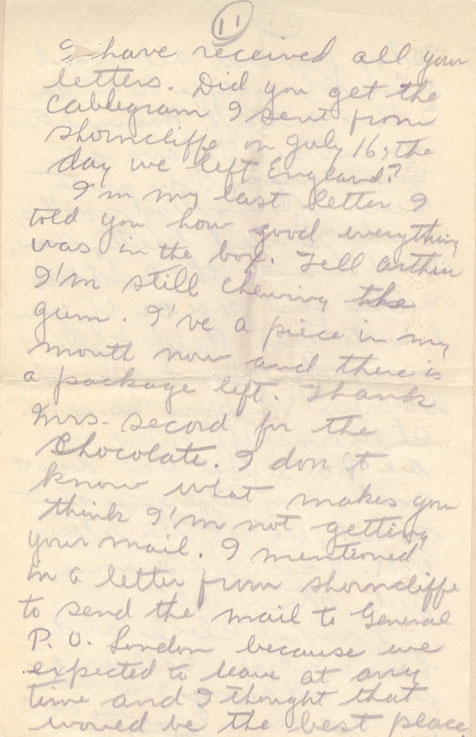 11
I have received all your
letters. Did you get the
cablegram I sent from
Shorncliffe on July 16, the
day we left England?
I'm my last letter I
told you how good everything
was in the box. Tell Arthur
I'm still chewing the
gum. I've a piece in my
mouth now and there is
a package left. Thank
Mrs. Secord for the
Chocolate. I don't
know what makes you
think I'm not getting
your mail. I mentioned
in a letter from Shorncliffe
to send the mail to General
P. O. London because we
expected to leave at any
time and I thought that
would be the best place